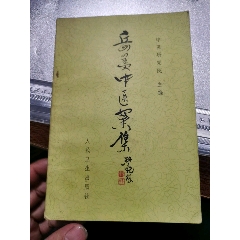 中医研究院 主编
岳美中医案集
人民卫生出版社